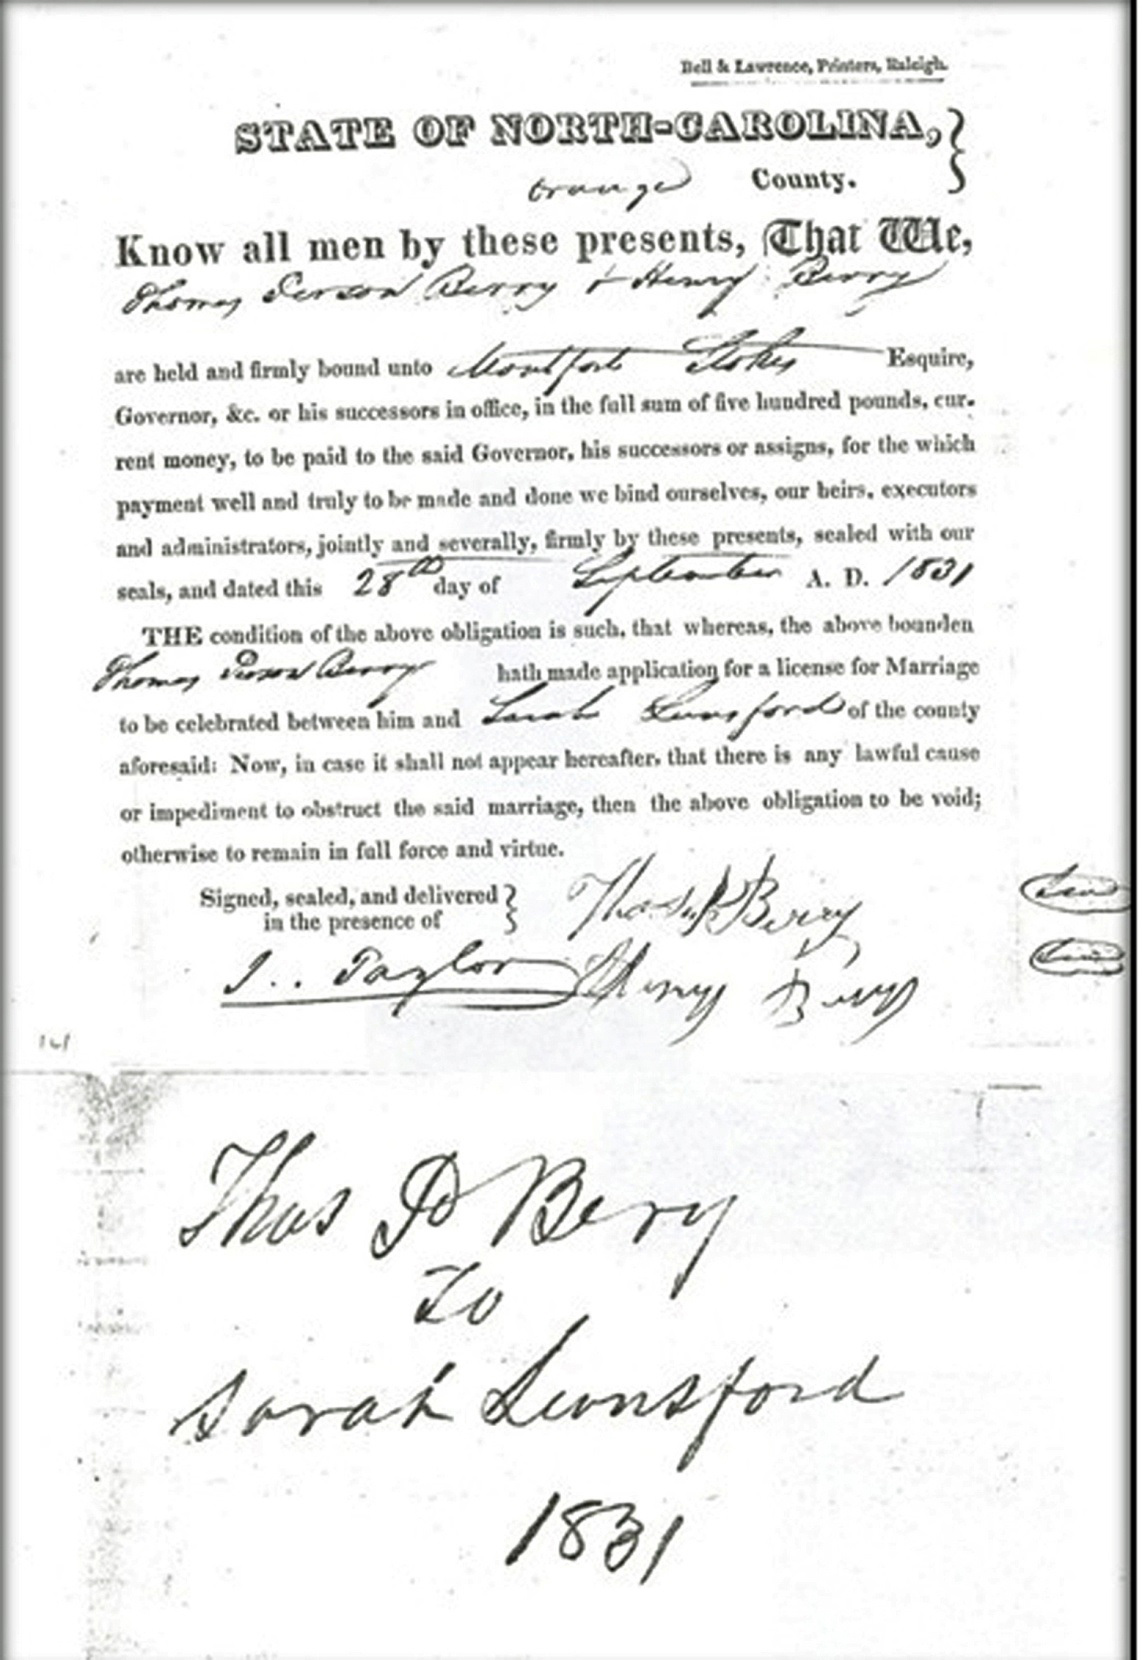 Bell & Lawrence, Printers, Raleigh.
STATE OF NORTH-CAROLINA,
Orange County.
Know all men by these presents, That We,
Thomas Person Berry & Henry Berry
are held and firmly bound unto Montfort Stokes Esquire,
Governor, &c. or his successors in office, in the full sum of five hundred pounds, cur-
rent money, to be paid to the said Governor, his successors or assigns, for the which
payment well and truly to be made and done we bind ourselves, our heirs, executors
and administrators, jointly and severally, firmly by these presents, sealed with our
seals, and dated this 28th day of September A. D. 1831
THE condition of the above obligation is such, that whereas, the above bounden
Thomas Person Berry hath made application for a license for Marriage
to be celebrated between him and Sarah Lunsford of the county
aforesaid: Now, in case it shall not appear hereafter, that there is any lawful cause
or impediment to obstruct the said marriage, then the above obligation to be void;
otherwise to remain in full force and virtue.
Signed, sealed, and delivered
in the presence of
Thomas P Berry
J. Taylor Henry Berry
141
Thos P Berry
To
Sarah Lunsford
1831